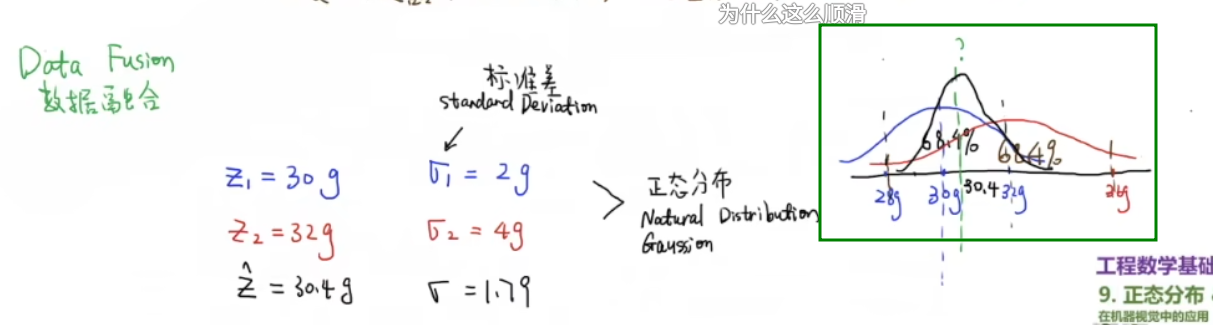 为什么这么顺滑
Data Fusion
数据融合
标准差
Standard Deviation
z₁ = 30g
σ₁ = 2g
z₂ = 32g
σ₂ = 4g
ẑ = 30.4g
σ = 1.79
正态分布
Natural Distribution
Gaussion
?
68.4%
68.4%
28g
30g
30.4
32g
36g
工程数学基础
9. 正态分布
在机器视觉中的应用